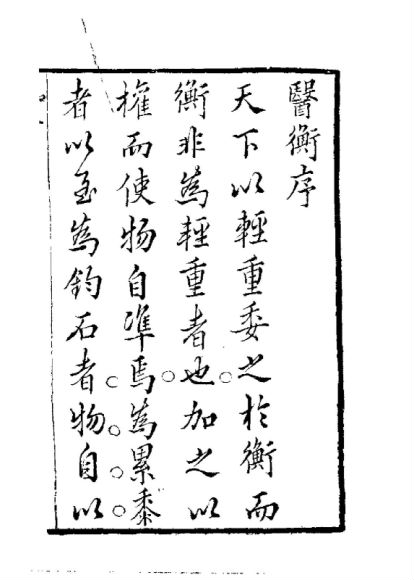 醫衡序
天下以輕重委之於衡而
衡非為輕重者也加之以
權而使物自準焉為累黍
者以至為鈞石者物自以